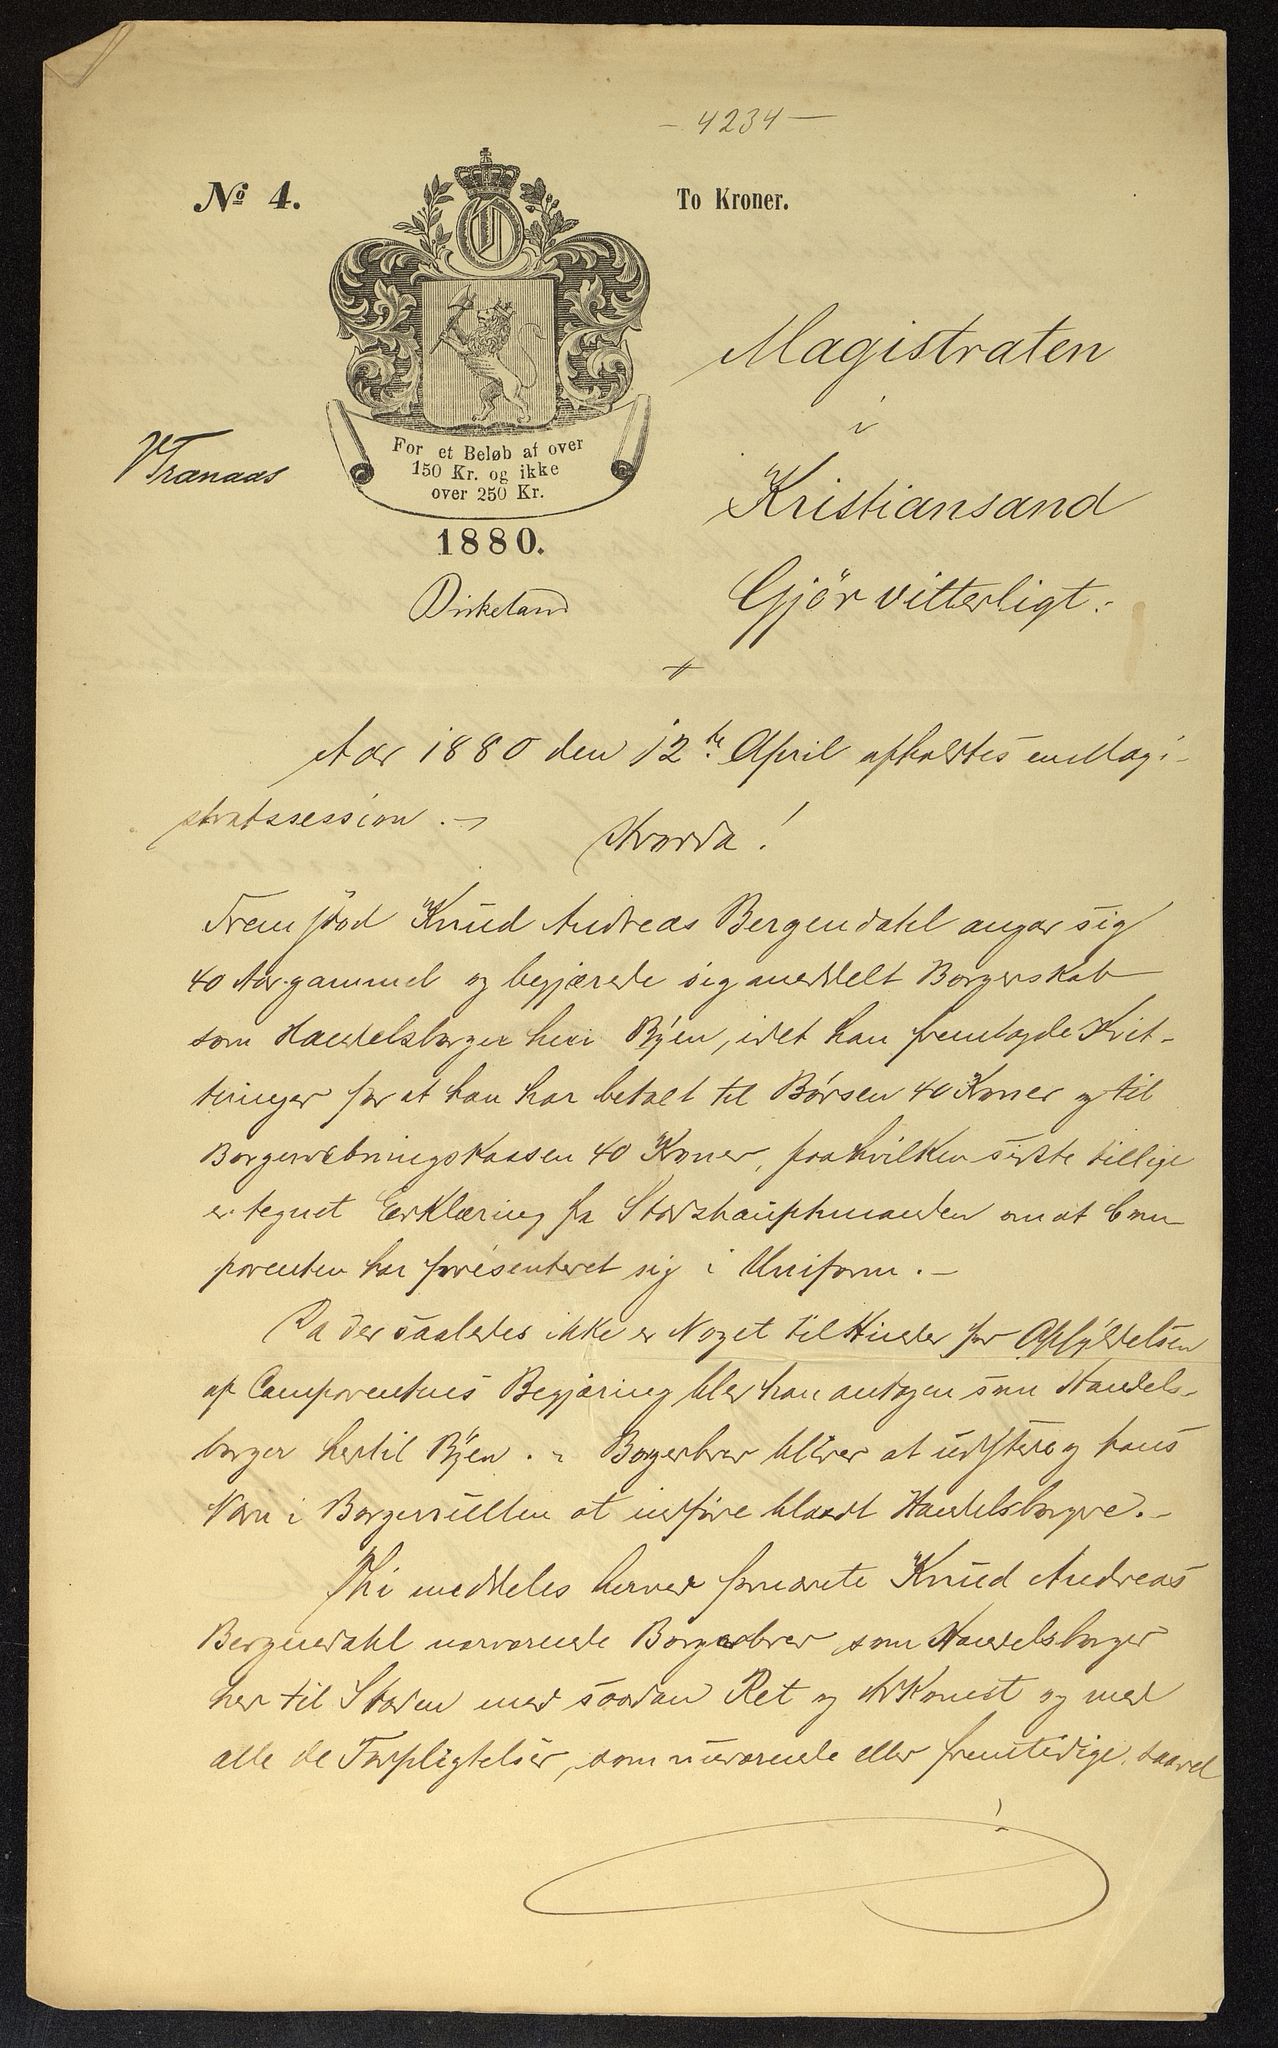 - 4234 -
No 4.
To Kroner.
O
Magistraten
i
Kristiansand
Gjör vitterligt:
VTranaas
For et Beløb af over
150 Kr. og ikke
over 250 Kr.
1880.
Birkeland
Aar 1880 den 12te April afholdtes en Magi-
stratssession. -
Hvorda!
Fremstod Knud Andreas Bergendahl angav sig
40 Aar gammel og begjærede sig meddelt Borgerskab
som Handelsborger heri Byen, idet han fremlagde Kvit-
teringer for at han har betalt til Børsen 40 Kroner og til
Borgervæbningskassen 40 Kroner, paa hvilken sidste tillige
er tegnet Erklæring fra Stadshauptmanden om at Com-
parenten har præsenteret sig i Uniform. -
Da der saaledes ikke er Noget til Hinder for Opfyldelsen
af Comparentens Begjæring blev han antagen som Handels-
borger hertil Byen. - Borgerbrev bliver at udstede og hans
Navn i Borgerrullen at indføre blandt Handelsborgere. -
Thi meddeles herved fornævnte Knud Andreas
Bergendahl nærværende Borgerbrev som Handelsborger
her til Staden med saadan Ret og Adkomst og med
alle de Forpligtelser, som nuværende eller fremtidige, saavel